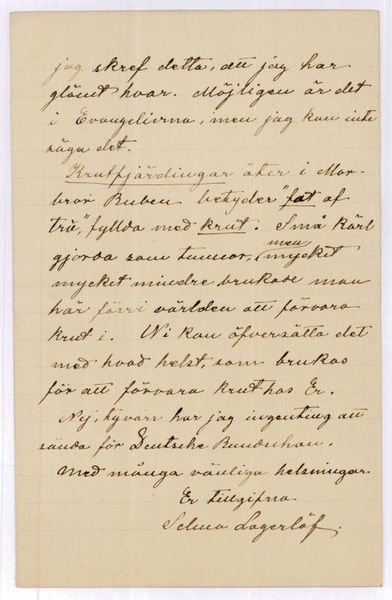 jag skref detta, att jag har
glömt hvar. Möjligen är det
i Evangelierna, men jag kan inte
säga det.
Krutfjärdingar åter i Mor-
bror Ruben betyder "fat af
trä", fyllda med krut. Små kärl
gjorda som tunnor, men mycket
mycket mindre brukade man
här förr i världen att förvara
krut i. Ni kan öfversätta det
med hvad helst, som brukas
för att förvara krut hos Er.
Nej, tyvärr har jag ingenting att
sända för Deutsche Rundschau.
Med många vänliga helsningar
Er tillgifna
Selma Lagerlöf.